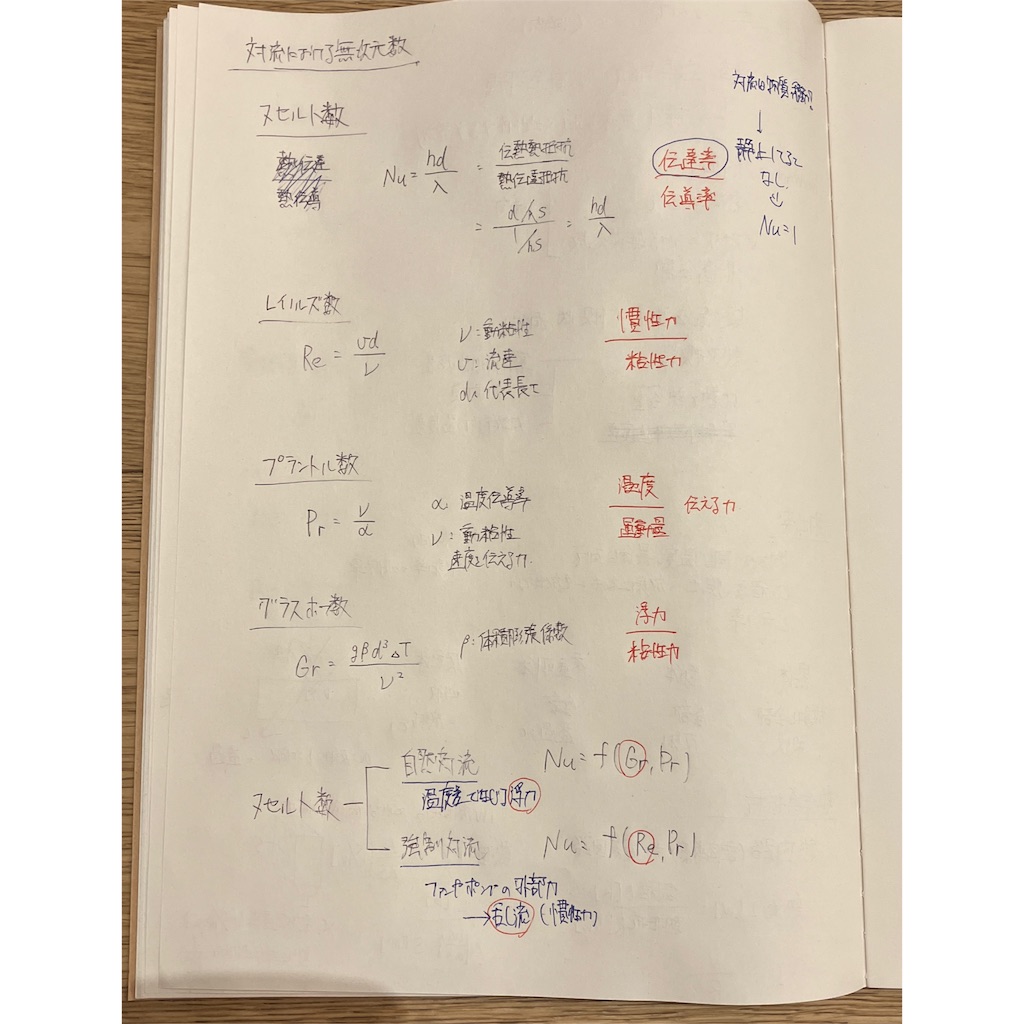 対流における無次元数
対流は物質移動!
↓
静止してると
なし
⇩
Nu=1
ヌセルト数
熱伝達
熱伝導
Nu = hd/λ = 伝熱熱抵抗/熱伝達抵抗
伝達率/伝導率
= d/λS / 1/hS = hd/λ
レイノルズ数
Re = vd/ν
ν:動粘性
v:流速
d:代表長さ
慣性力/粘性力
プラントル数
Pr = ν/α
α:温度伝導率
ν:動粘性
速度を伝える力
温度/ 伝える力
グラスホー数
Gr = gβd³ΔT/ν²
β:体積膨張係数
浮力/粘性力
ヌセルト数
自然対流 Nu = f(Gr, Pr)
温度差で生じる浮力
強制対流 Nu = f(Re, Pr)
ファンやポンプの外部力
→乱流(慣性力)